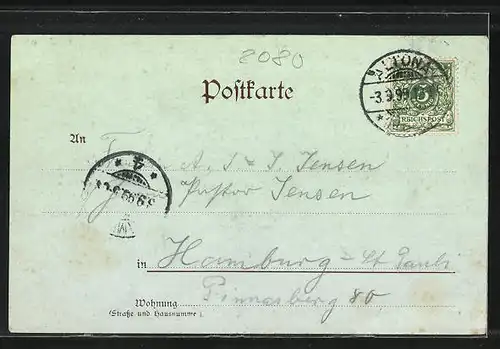 8080
Postkarte
ALTONA
-3.9.99
5
REICHSPOST
An
A. & S. Jensen
Pastor Jensen
in Hamburg - St Pauli
Wohnung Pinnasberg 80
(Straße und Hausnummer).